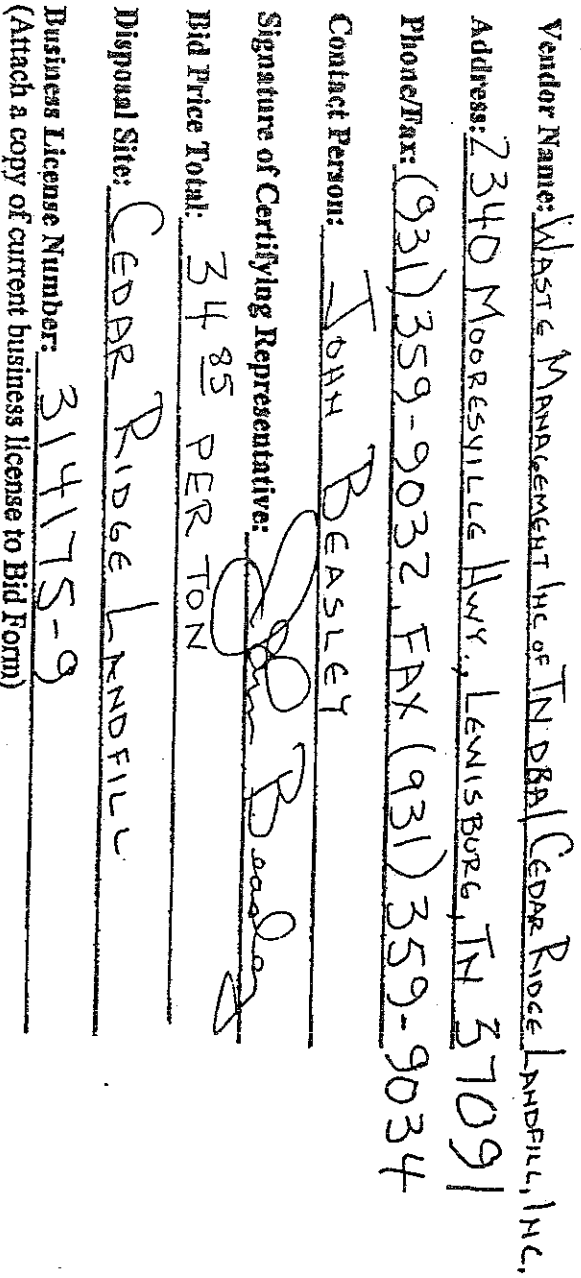 Vendor Name: WASTE MANAGEMENT INC OF TN DBA/ CEDAR RIDGE LANDFILL, INC.
Address: 2340 MOORESVILLE HWY., LEWISBURG, TN 37091
Phone/Fax: (931) 359-9032, FAX (931) 359-9034
Contact Person: JOHN BEASLEY
Signature of Certifying Representative: John Beasley
Bid Price Total: 34 85 PER TON
Disposal Site: CEDAR RIDGE LANDFILL
Business License Number: 314175-9
(Attach a copy of current business license to Bid Form)